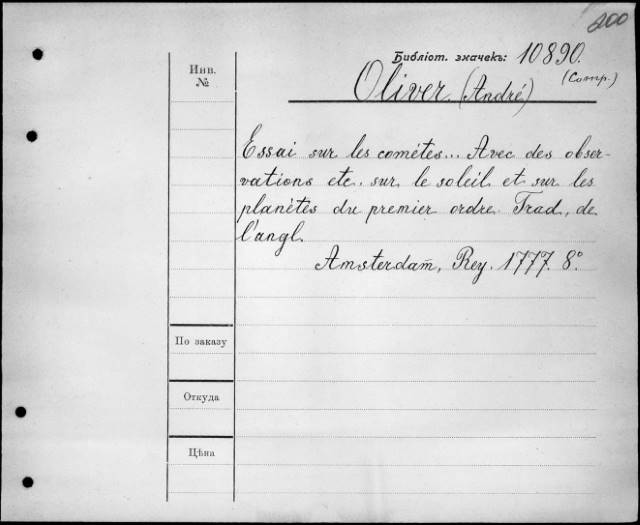 200
Библіот. значекъ: 10890.
(Comp.)
Инв.
№
Oliver (André)
Essai sur les comètes... Avec des obser-
vations etc. sur le soleil et sur les
planètes du premier ordre. Trad. de
l'angl.
Amsterdam, Rey. 1777. 8°.
По заказу
Откуда
Цѣна